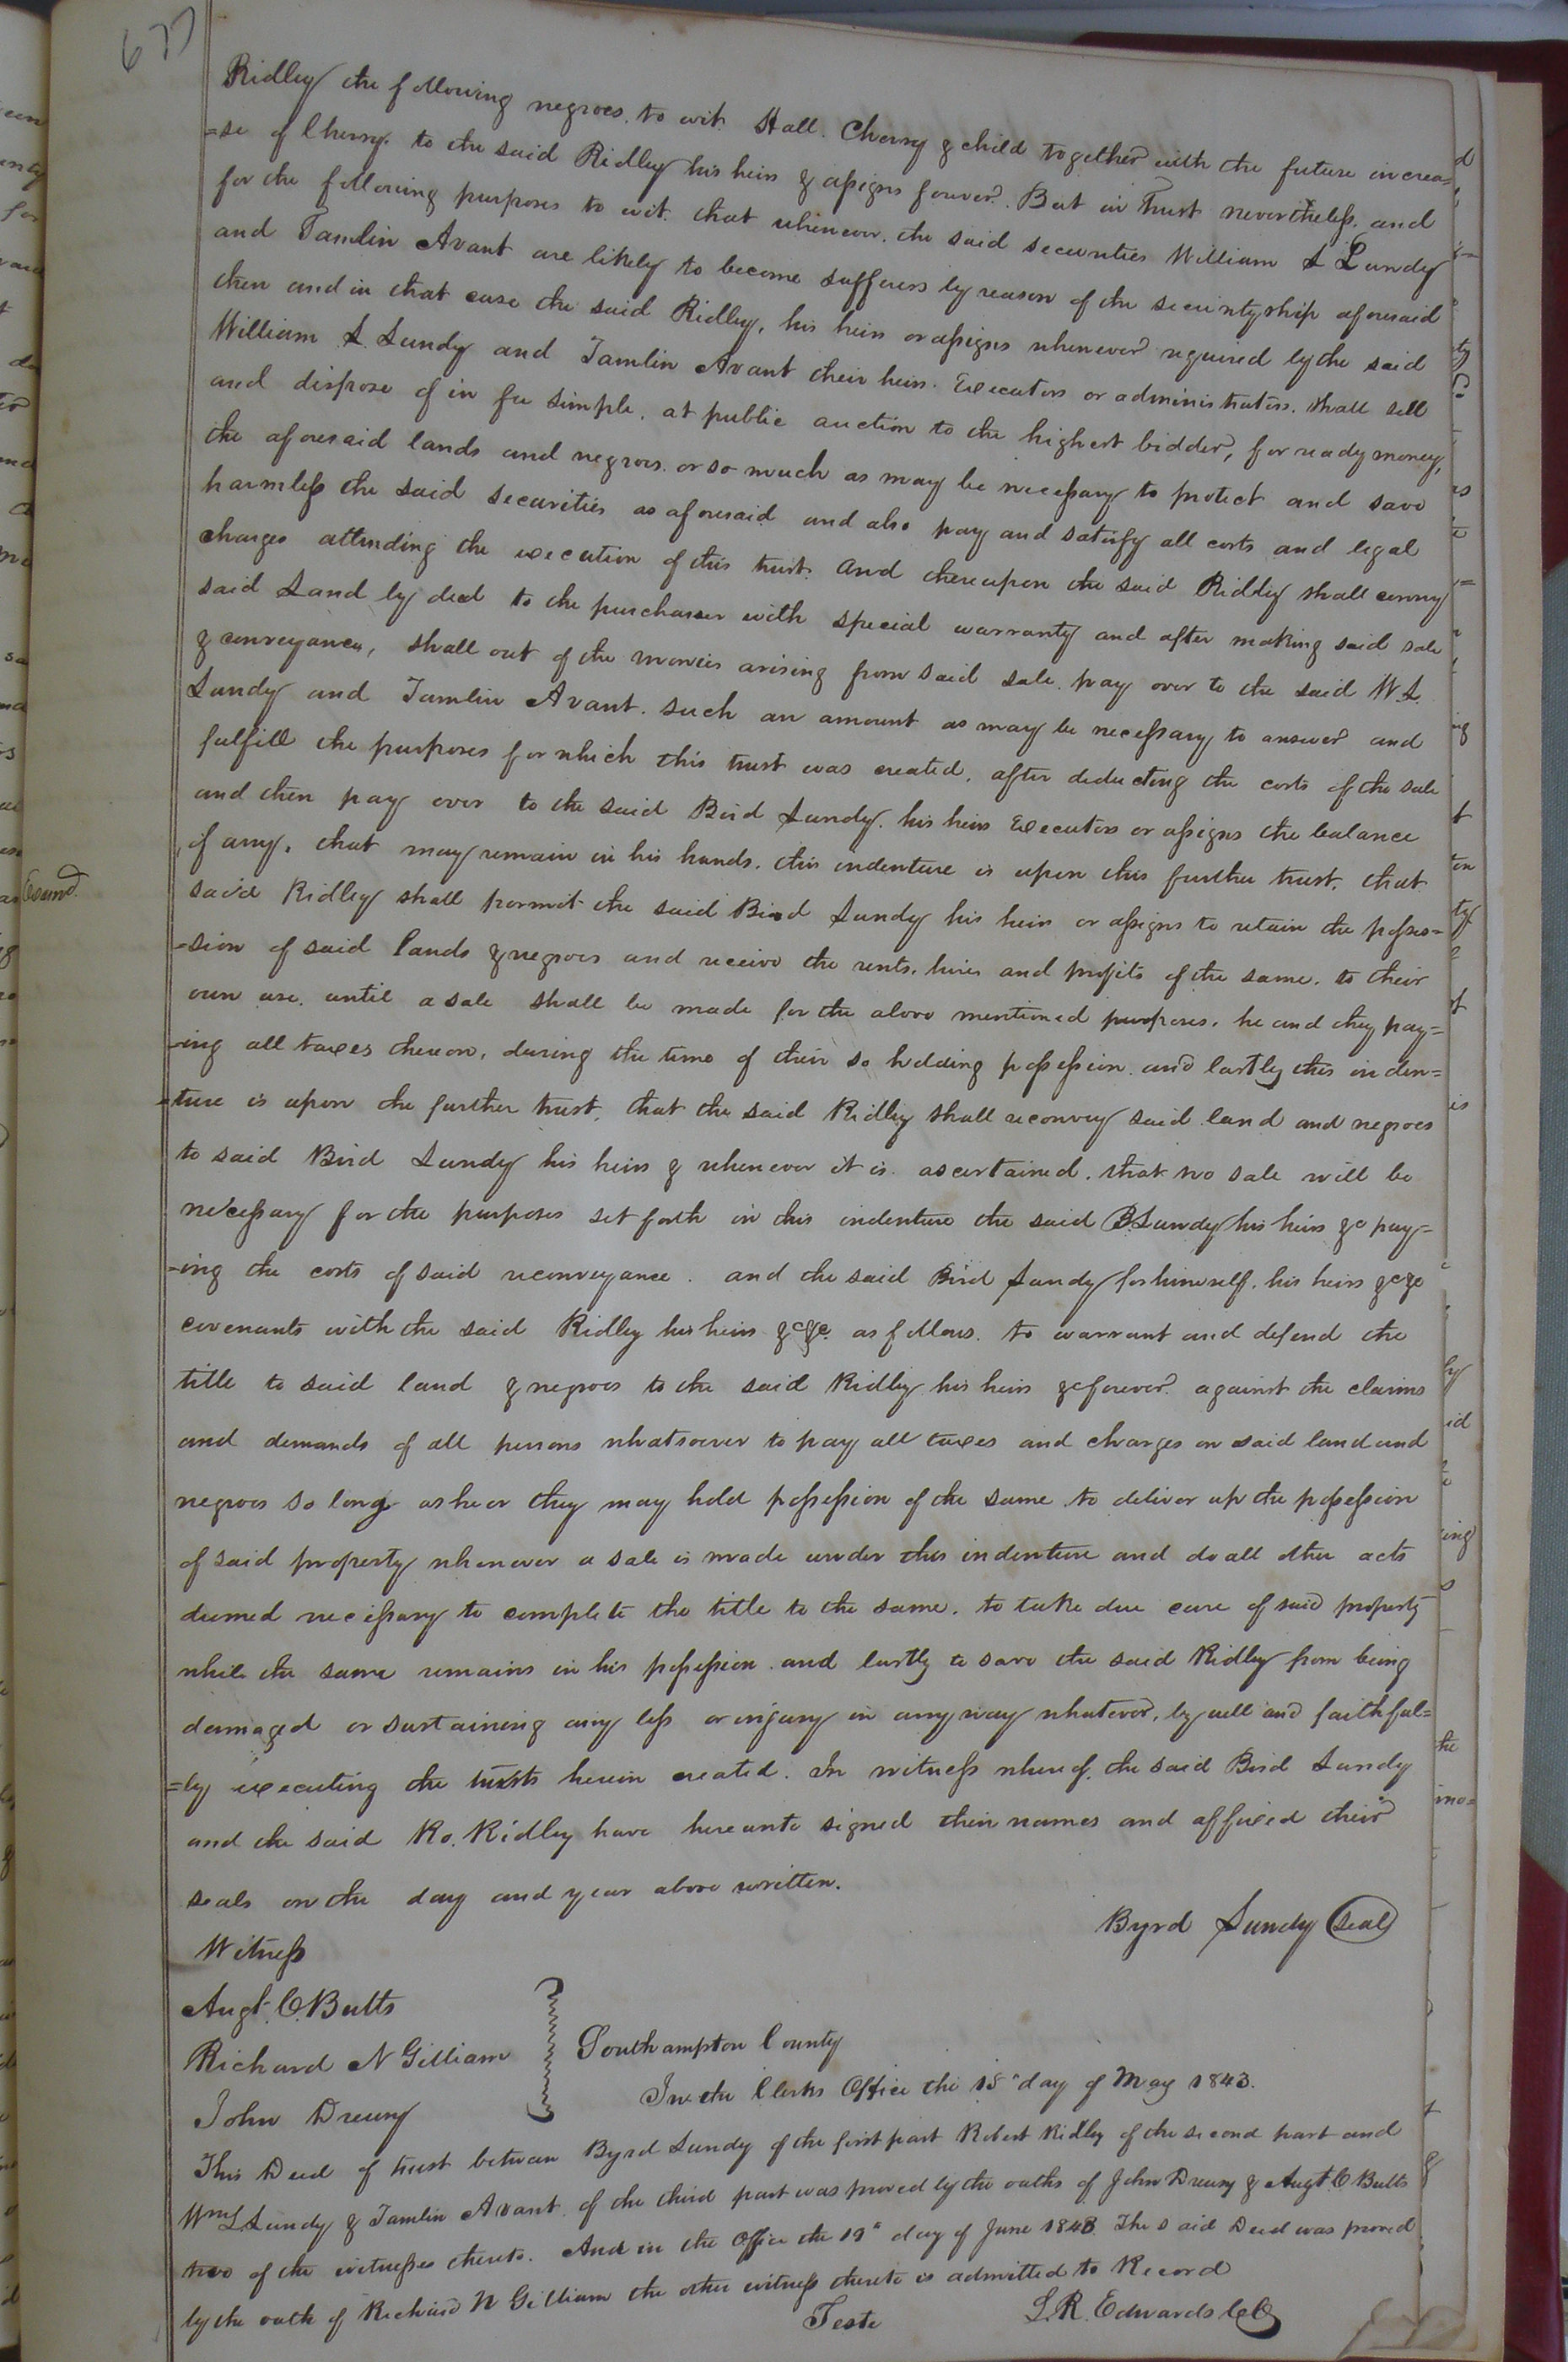 677
Ridley the following negroes. to wit. Hall. Cherry & child together with the future increa=
=se of Cherry. to the said Ridley his heirs & assigns forever. But in Trust nevertheless. and
for the following purposes to wit. that whenever. the said securities William L Lundy
and Tamlin Avant are likely to become sufferers by reason of the securityship aforesaid
then and in that case the said Ridley, his heirs or assigns whenever required by the said
William L. Lundy and Tamlin Avant their heirs. Executors or administrators. shall sell
and dispose of in fee simple. at public auction to the highest bidder, for ready money,
the aforesaid lands and negroes. or so much as may be necessary to protect and save
harmless the said securities as aforesaid and also pay and satisfy all costs and legal
charges attending the execution of this trust. And thereupon the said Ridley shall convey
said Land by deed to the purchaser with special warranty and after making said sale
& conveyance, shall out of the monies arising from said sale. pay over to the said W. L.
Lundy and Tamlin Avant. such an amount as may be necessary to answer and
fulfill the purposes for which this trust was created, after deducting the costs of the sale
and then pay over to the said Bird Lundy. his heirs Executors or assigns the balance
if any, that may remain in his hands. this indenture is upon this further trust, that
said Ridley shall permit the said Bird Lundy his heirs or assigns to retain the posses=
=sion of said lands & negroes and receive the rents, hires and profits of the same. to their
own use. until a sale shall be made for the above mentioned purposes. he and they pay=
=ing all taxes thereon, during the time of their so holding possession. and lastly this inden=
=ture is upon the further trust, that the said Ridley shall reconvey said land and negroes
to said Bird Lundy his heirs & whenever it is ascertained. that no sale will be
necessary for the purposes set forth in this indenture the said B. Lundy his heirs &c pay=
=ing the costs of said reconveyance. and the said Bird Lundy for himself. his heirs &c &c
covenants with the said Ridley his heirs &c &c. as follows. to warrant and defend the
title to said land & negroes to the said Ridley his heirs &c forever. against the claims
and demands of all persons whatsoever to pay all taxes and charges on said land and
negroes so long as he or they may hold possession of the same to deliver up the possession
of said property whenever a sale is made under this indenture and do all other acts
deemed necessary to complete the title to the same. to take due care of said property
while the same remains in his possession. and lastly to save the said Ridley from being
damaged or sustaining any loss or injury in any way whatever, by well and faithful=
=ly executing the trusts herein created. In witness whereof. the said Bird Lundy
and the said Ro. Ridley have hereunto signed their names and affixed their
seals on the day and year above written.
Byrd Lundy Seal
Witness
Augt. C. Butts
Richard N Gilliam
John Drewry
Southampton County
In the Clerks Office the 15" day of May 1843.
This Deed of trust between Byrd Lundy of the first part Robert Ridley of the second part and
Wm L Lundy & Tamlin Avant of the third part was proved by the oaths of John Drewry & Augt C Butts
two of the witnesses thereto. And in the Office the 19" day of June 1843. The said Deed was proved
by the oath of Richard N Gilliam the other witness thereto is admitted to Record
Teste L. R. Edwards CC